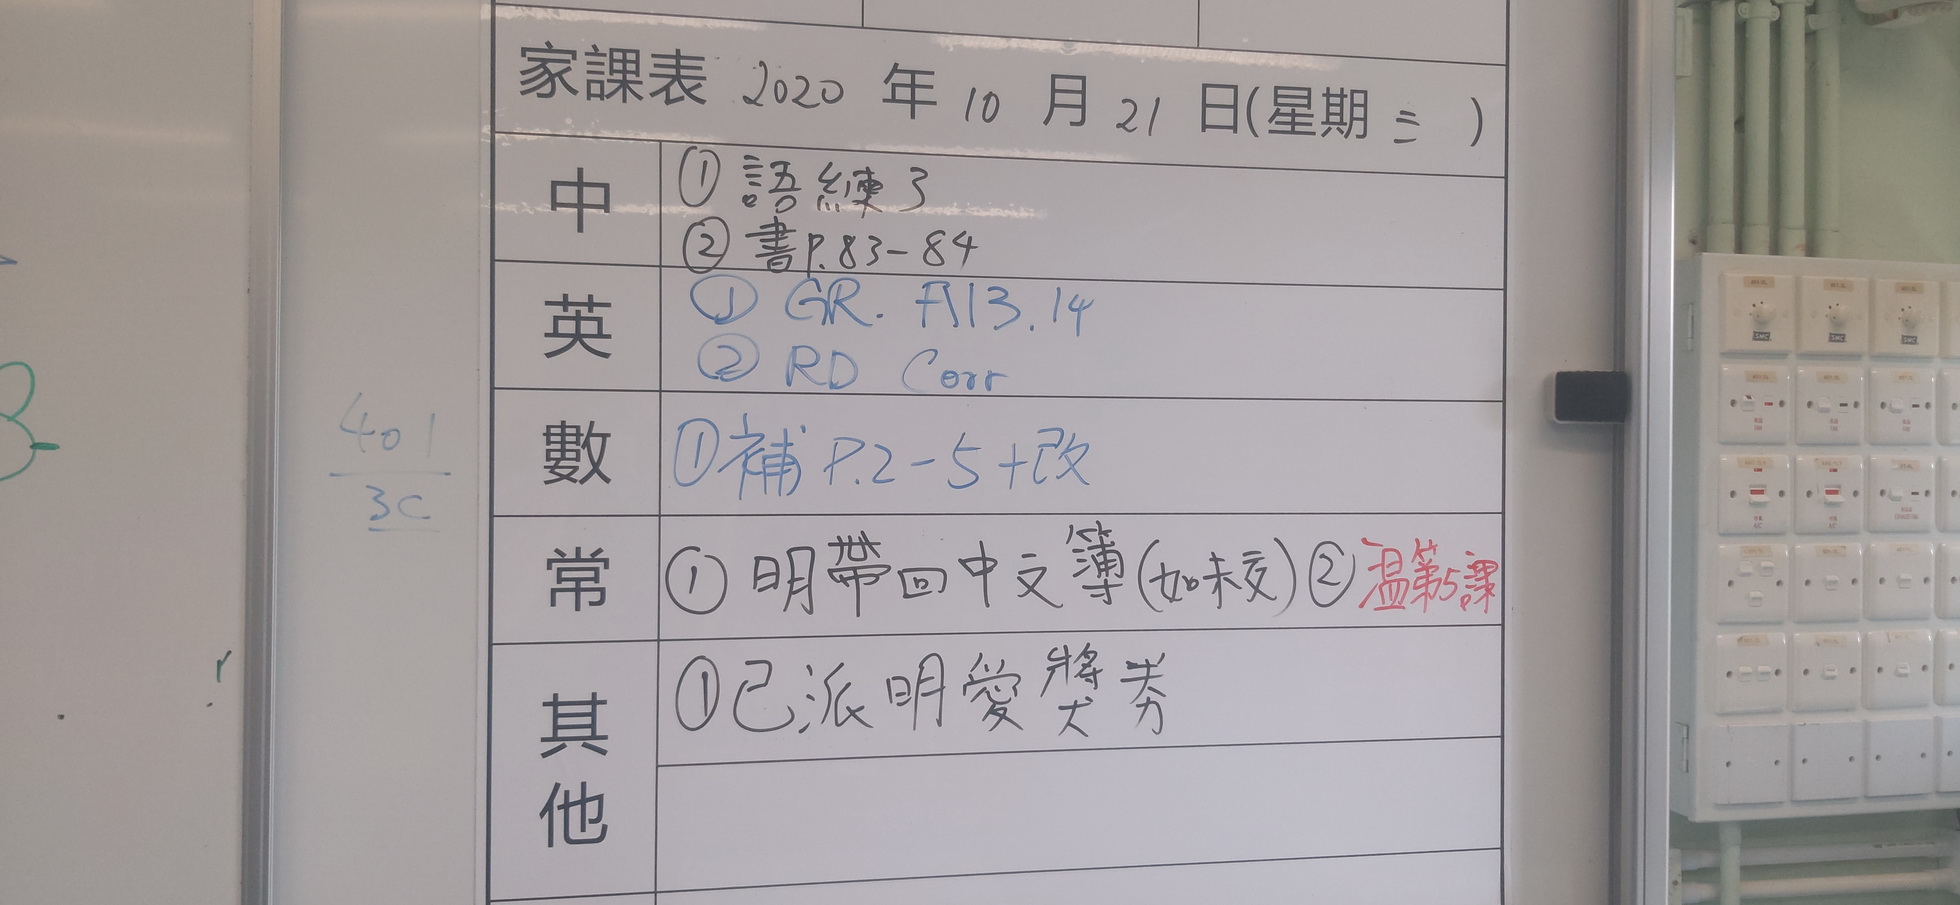 家課表 2020 年 10 月 21 日(星期 三 )
中
① 語練3
② 書P.83-84
英
① GR. A13.14
② RD Corr
數
①補 P.2-5+改
常
① 明帶回中文簿(如未交) ②溫第5課
其他
①已派明愛獎券
401
3C